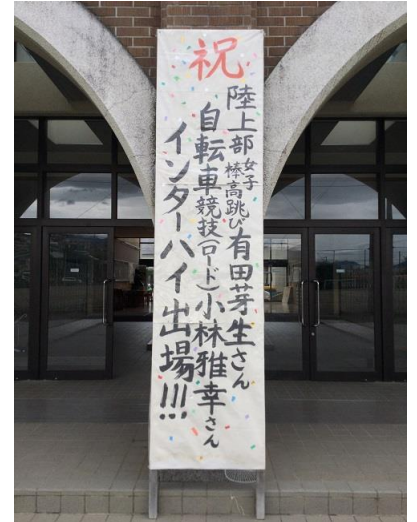 祝
陸上部女子棒高跳び有田芽生さん
自転車競技(ロード)小林雅幸さん
インターハイ出場!!!